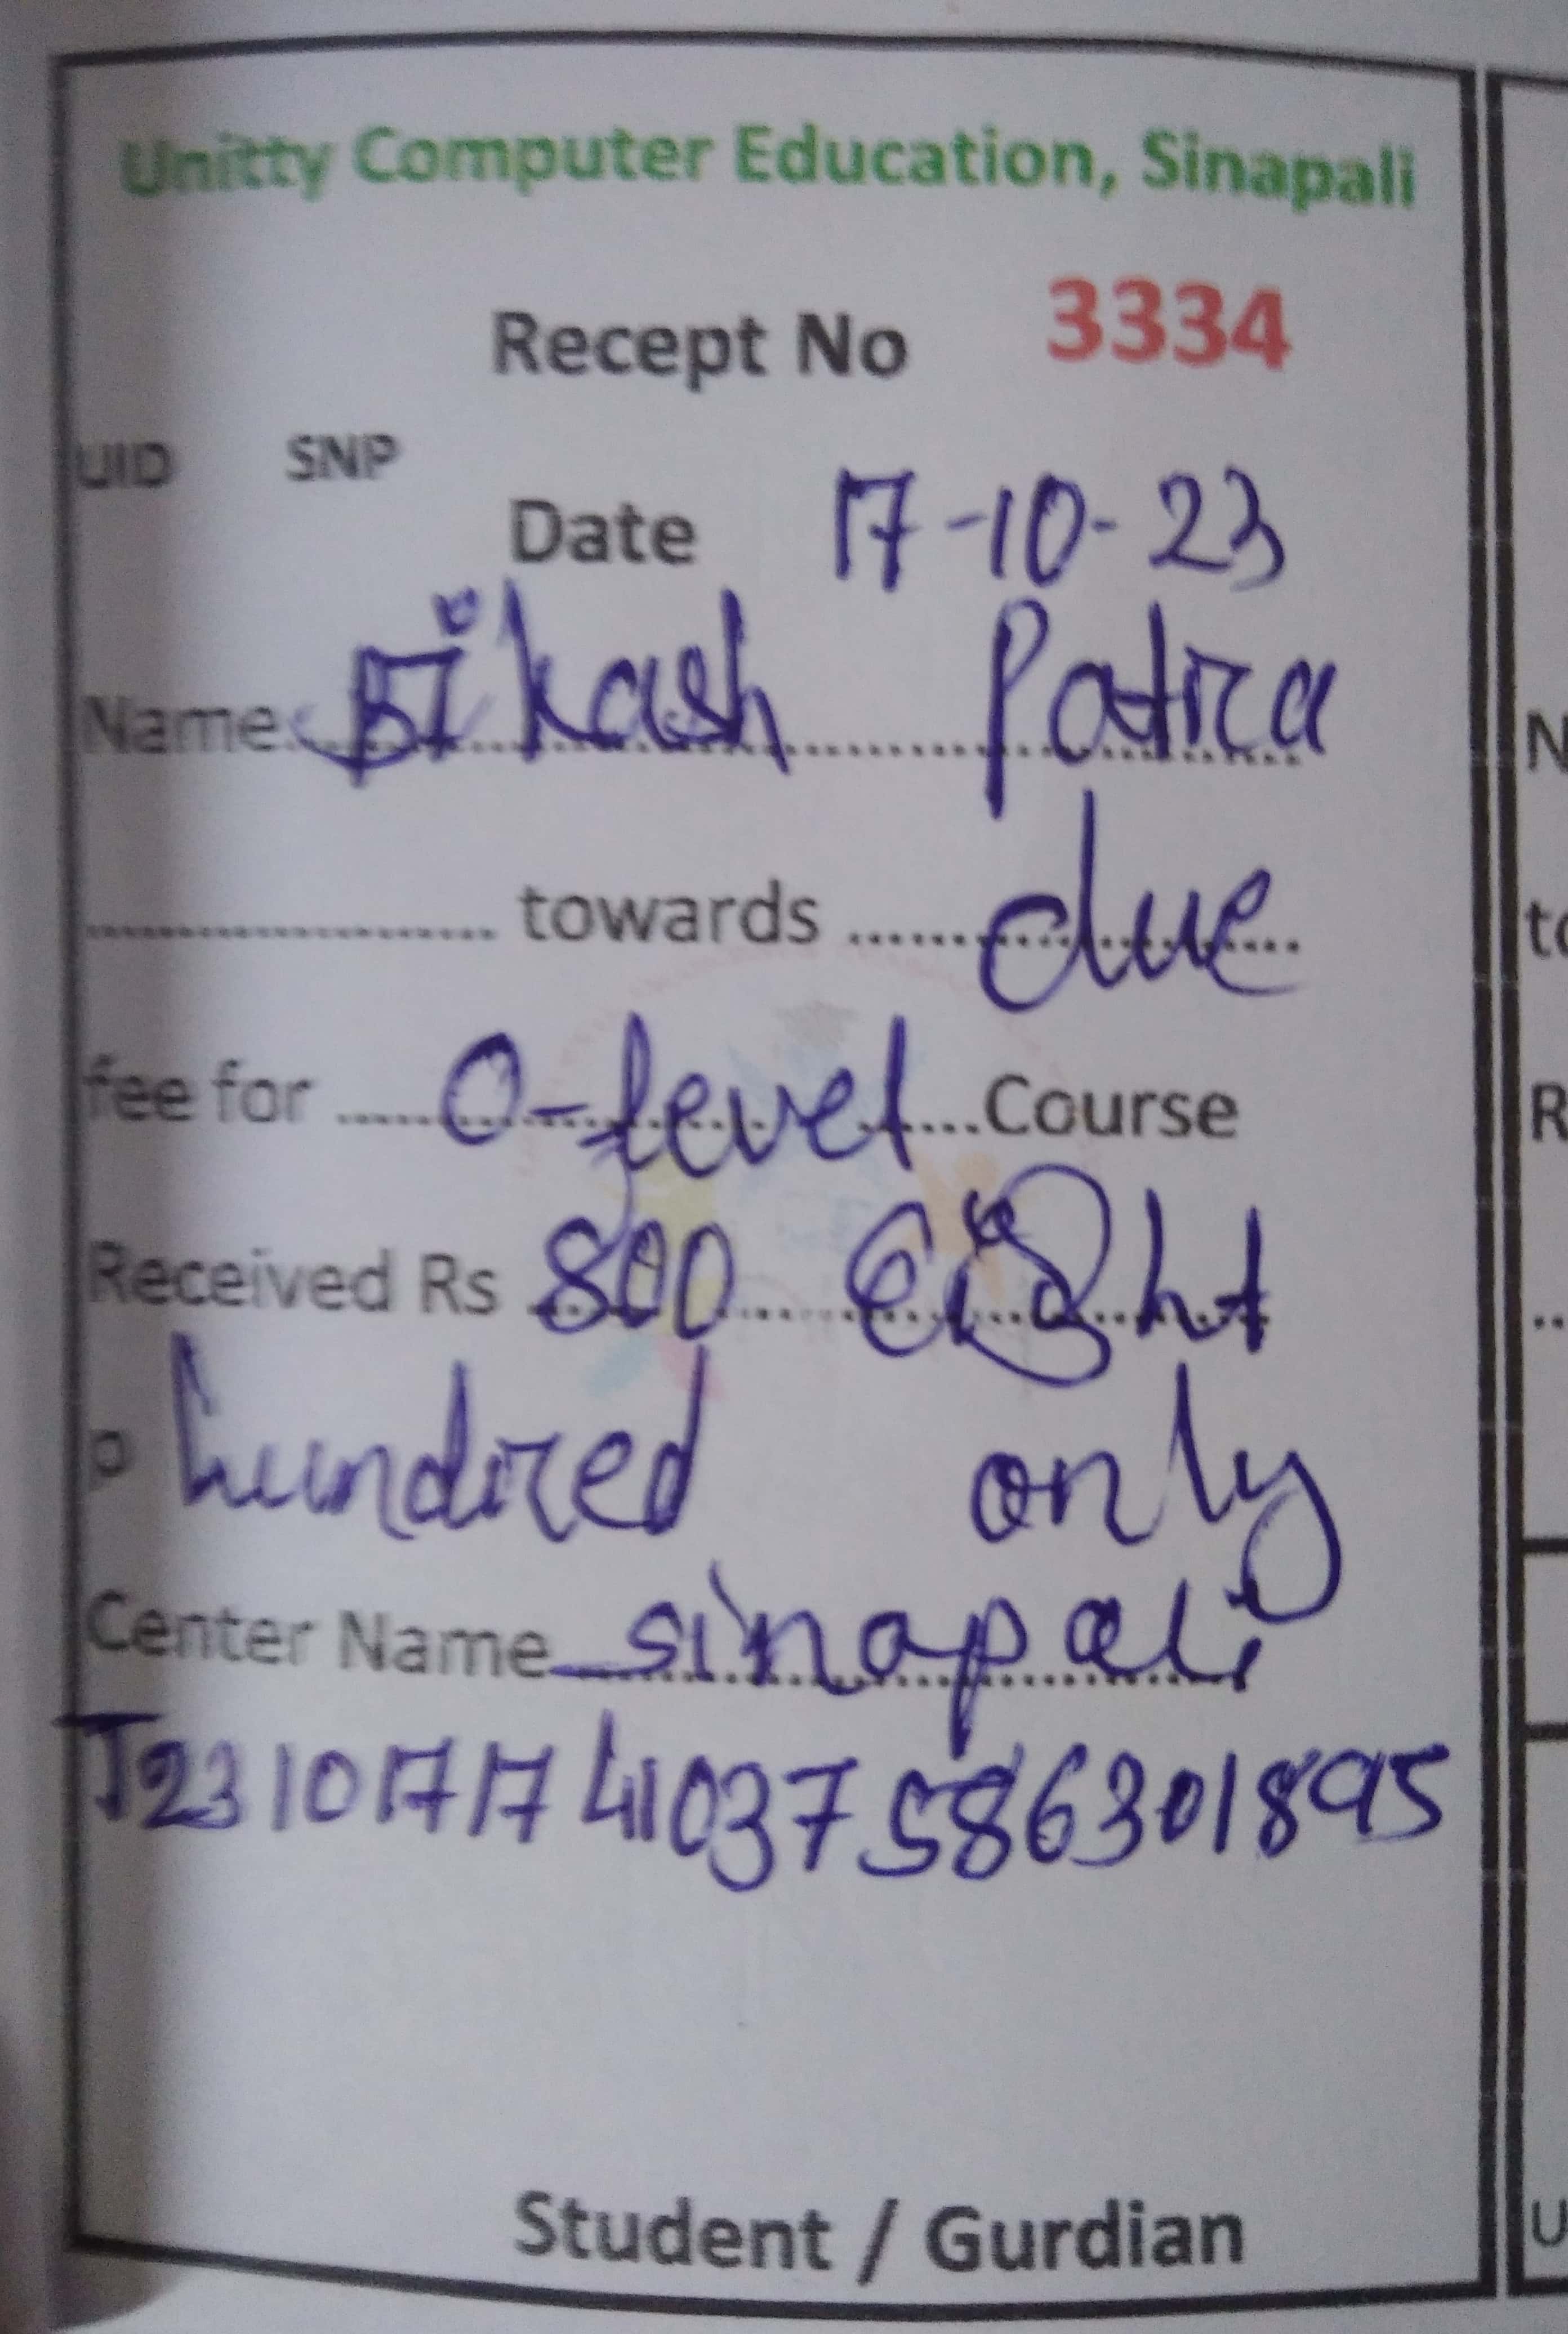 Unitty Computer Education, Sinapali
Recept No 3334
UID SNP
Date 17-10-23
Name Bikash Patra
towards due
fee for O-level Course
Received Rs 800 Eight
hundred only
Center Name sinapali
T2310171741037586301895
Student / Gurdian